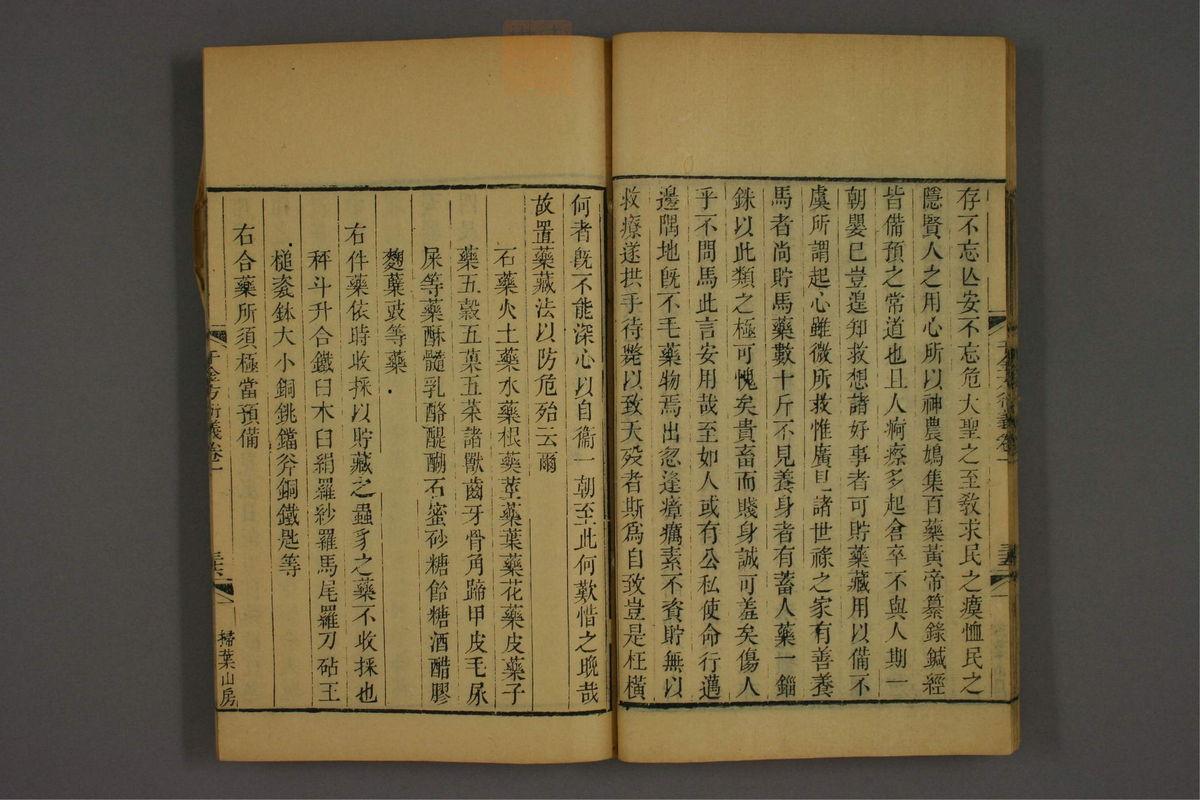 存不忘亾安不忘危大聖之至敎求民之瘼恤民之
隱賢人之用心所以神農鳩集百藥黃帝纂錄鍼經
皆備預之常道也且人痾瘵多起倉卒不與人期一
朝嬰巳豈遑知救想諸好事者可貯藥藏用以備不
虞所謂起心雖微所救惟廣見諸世祿之家有善養
馬者尚貯馬藥數十斤不見養身者有蓄人藥一錙
銖以此類之極可愧矣貴畜而賤身誠可羞矣傷人
乎不問馬此言安用哉至如人或有公私使命行邁
邊隅地旣不毛藥物焉出忽逢瘴癘素不資貯無以
救療遂拱手待斃以致夭殁者斯爲自致豈是枉橫
何者旣不能深心以自衞一朝至此何歎惜之晚哉
故置藥藏法以防危殆云爾
石藥火土藥水藥根藥莖藥葉藥花藥皮藥子
藥五穀五菓五菜諸獸齒牙骨角蹄甲皮毛尿
屎等藥酥髓乳酪醍醐石蜜砂糖飴糖酒醋膠
麴蘗豉等藥
右件藥依時收採以貯藏之蟲豸之藥不收採也
秤斗升合鐵臼木臼絹羅紗羅馬尾羅刀砧玉
槌瓷鉢大小銅銚鐺斧銅鐵匙等
右合藥所須極當預備
千金方衍義卷一
掃葉山房